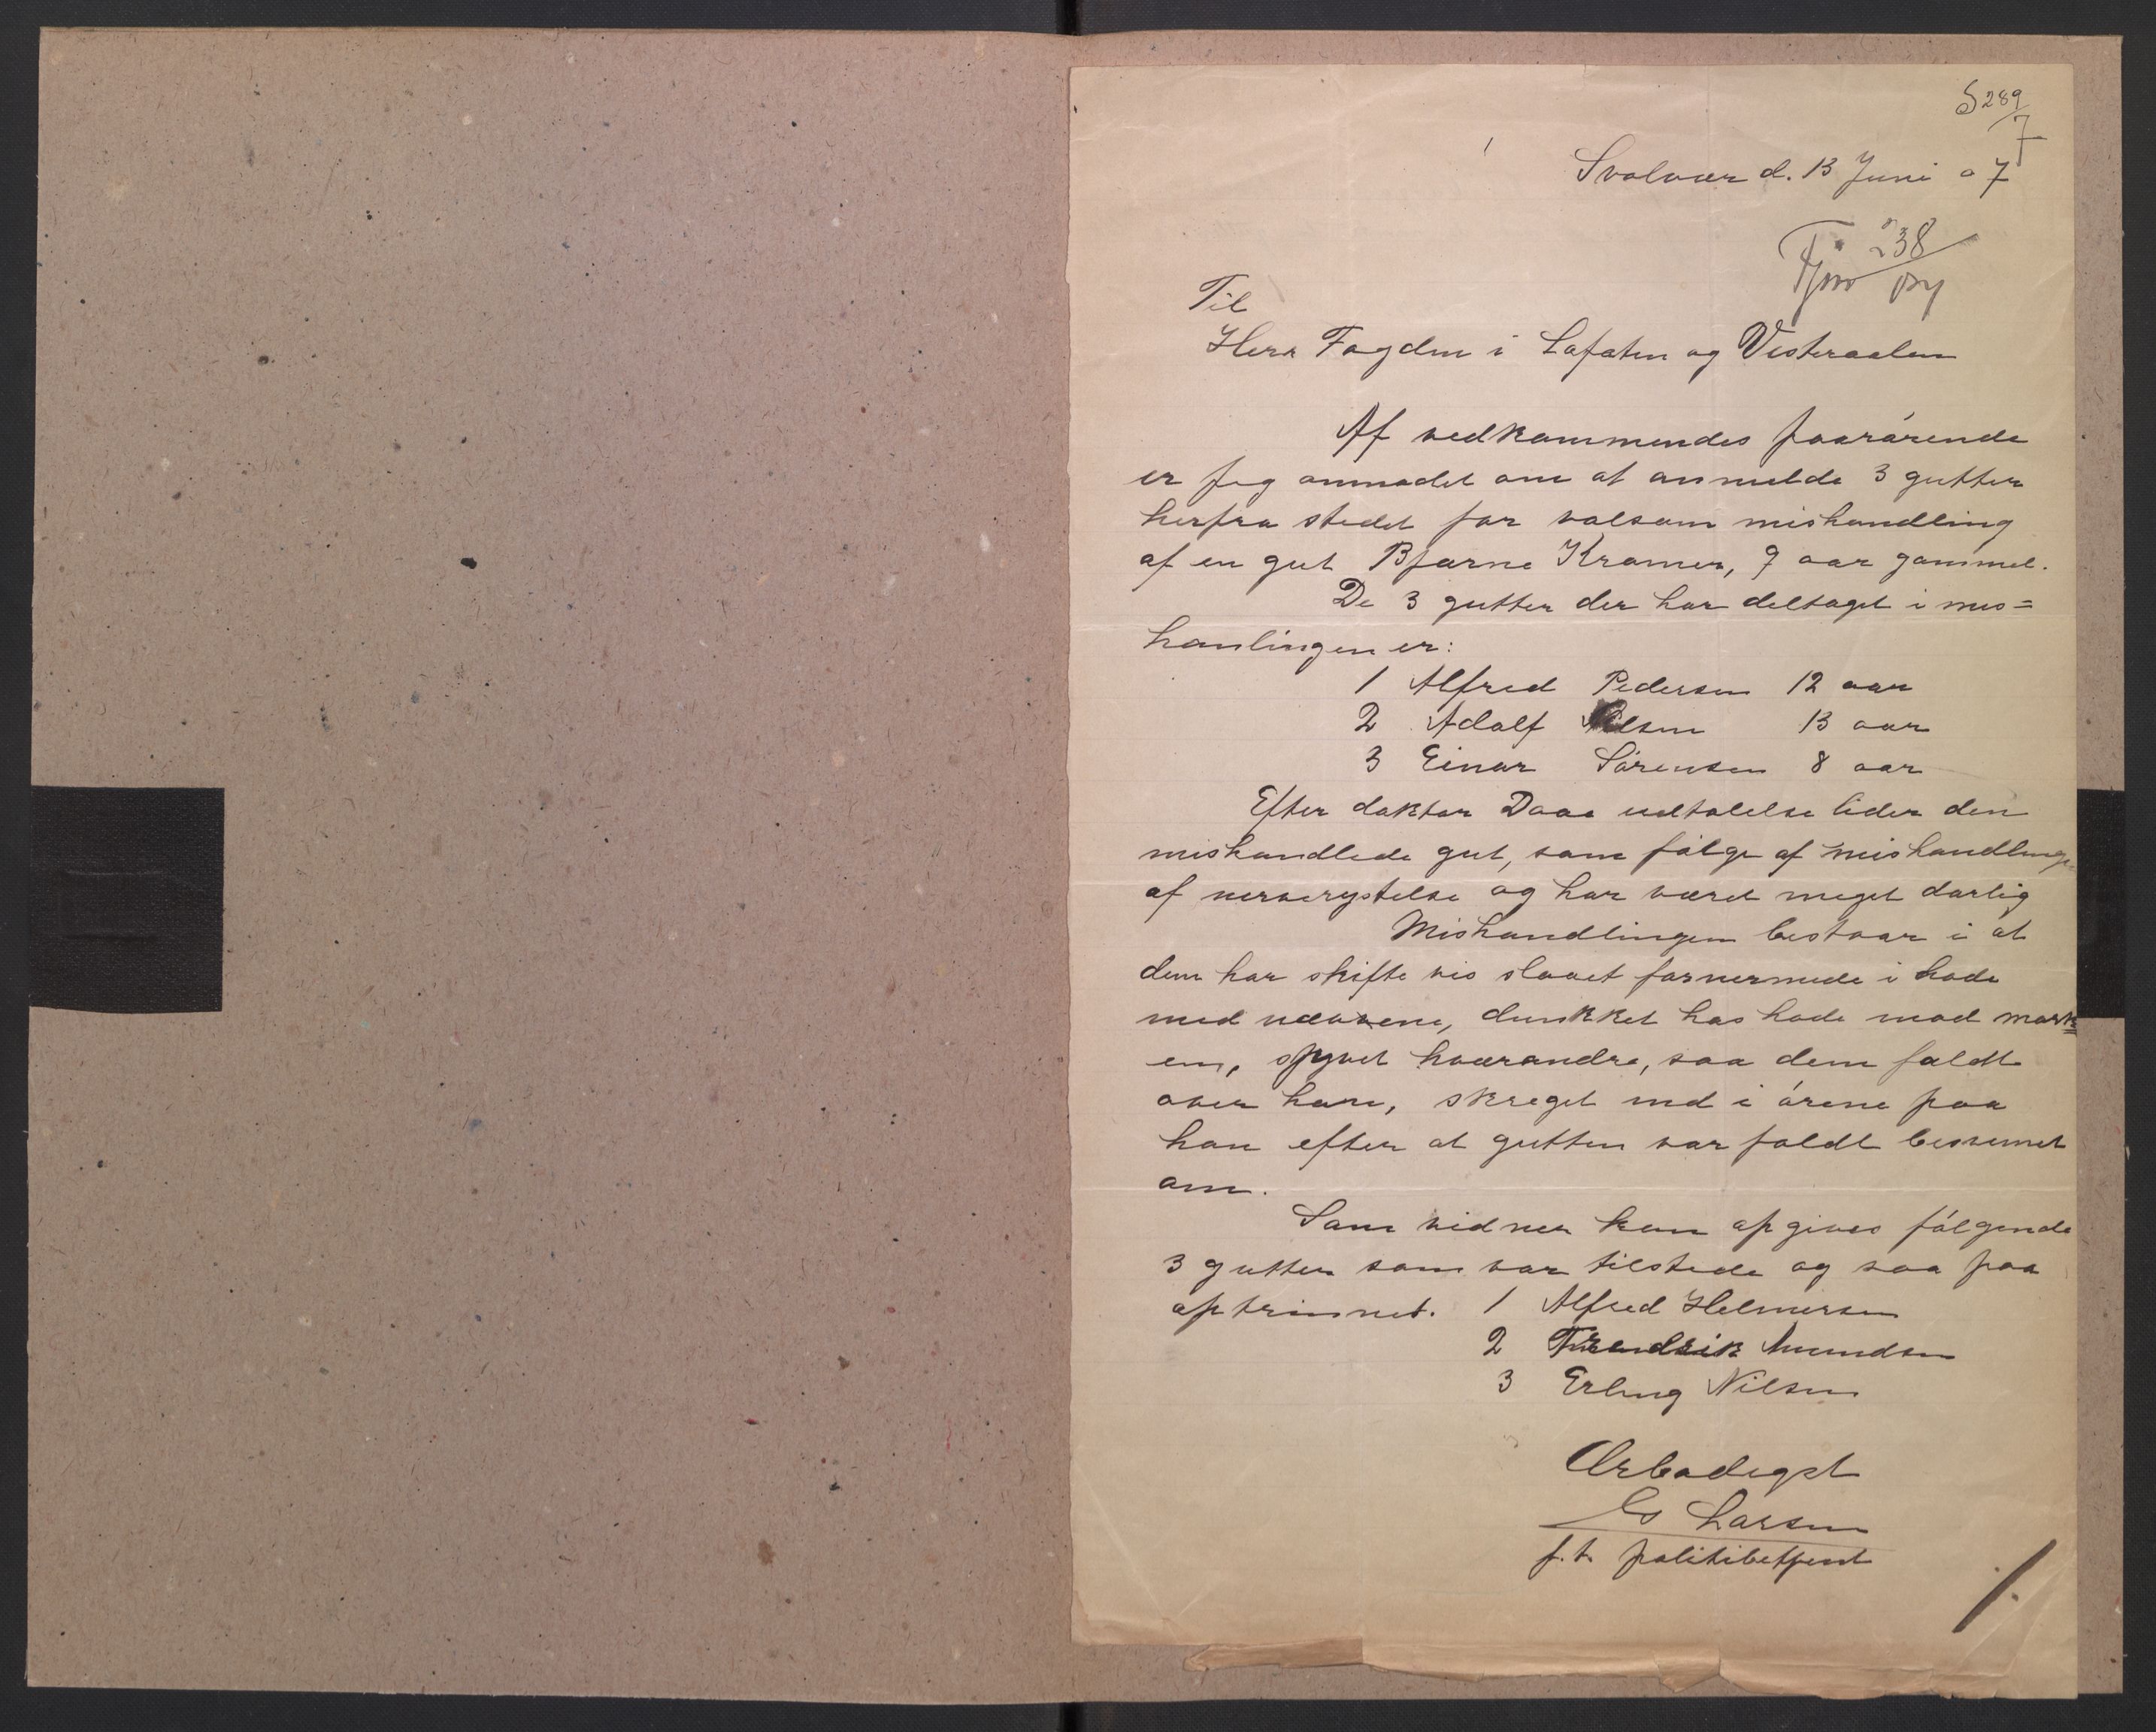 S 289
7
Svolvær d. 13 Juni 07
238
Til
Herr Fogden i Lofoten og Vesteraalen
Af vedkommendes paarårende
er jeg anmodet om at anmelde 3 gutter
herfra stedet for valsom mishandling
af en gut Bjarne Kramer, 9 aar gammel.
De 3 gutter der har deltaget i mis=
hanlingen er:
1 Alfred Pedersen 12 aar
2 Adolf Nilsen 13 aar
3 Einar Sórensen 8 aar
Efter doktor Daaa udtalelse lider den
mishandlede gut, som fólge af mishandlingen
af nerverystelse og har været meget darlig
Mishandlingen bestaar i at
dem har skifte vis slaaet fornermede i hode
med nævene, dunkket has hode mod mark
en, spyvet hværandre, saa dem faldt
over han, skreget ind i órene paa
han efter at gutten var faldt besvemet
om.
Som vidner kan opgives fólgende
3 gutter som var tilstede og saa paa
optrinnet. 1 Alfred Helmersen
2 Fredrik Amundsen
3 Erling Nilsen
Ærbødigst
Larsen
f.t. politibetjent
1.